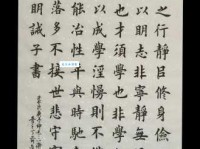 之行靜㠯修身儉
以明志非寧靜無
也才須學也非
以成學淫慢則不
能冶性年與時馳
落多不接世悲守窮
明誡子書